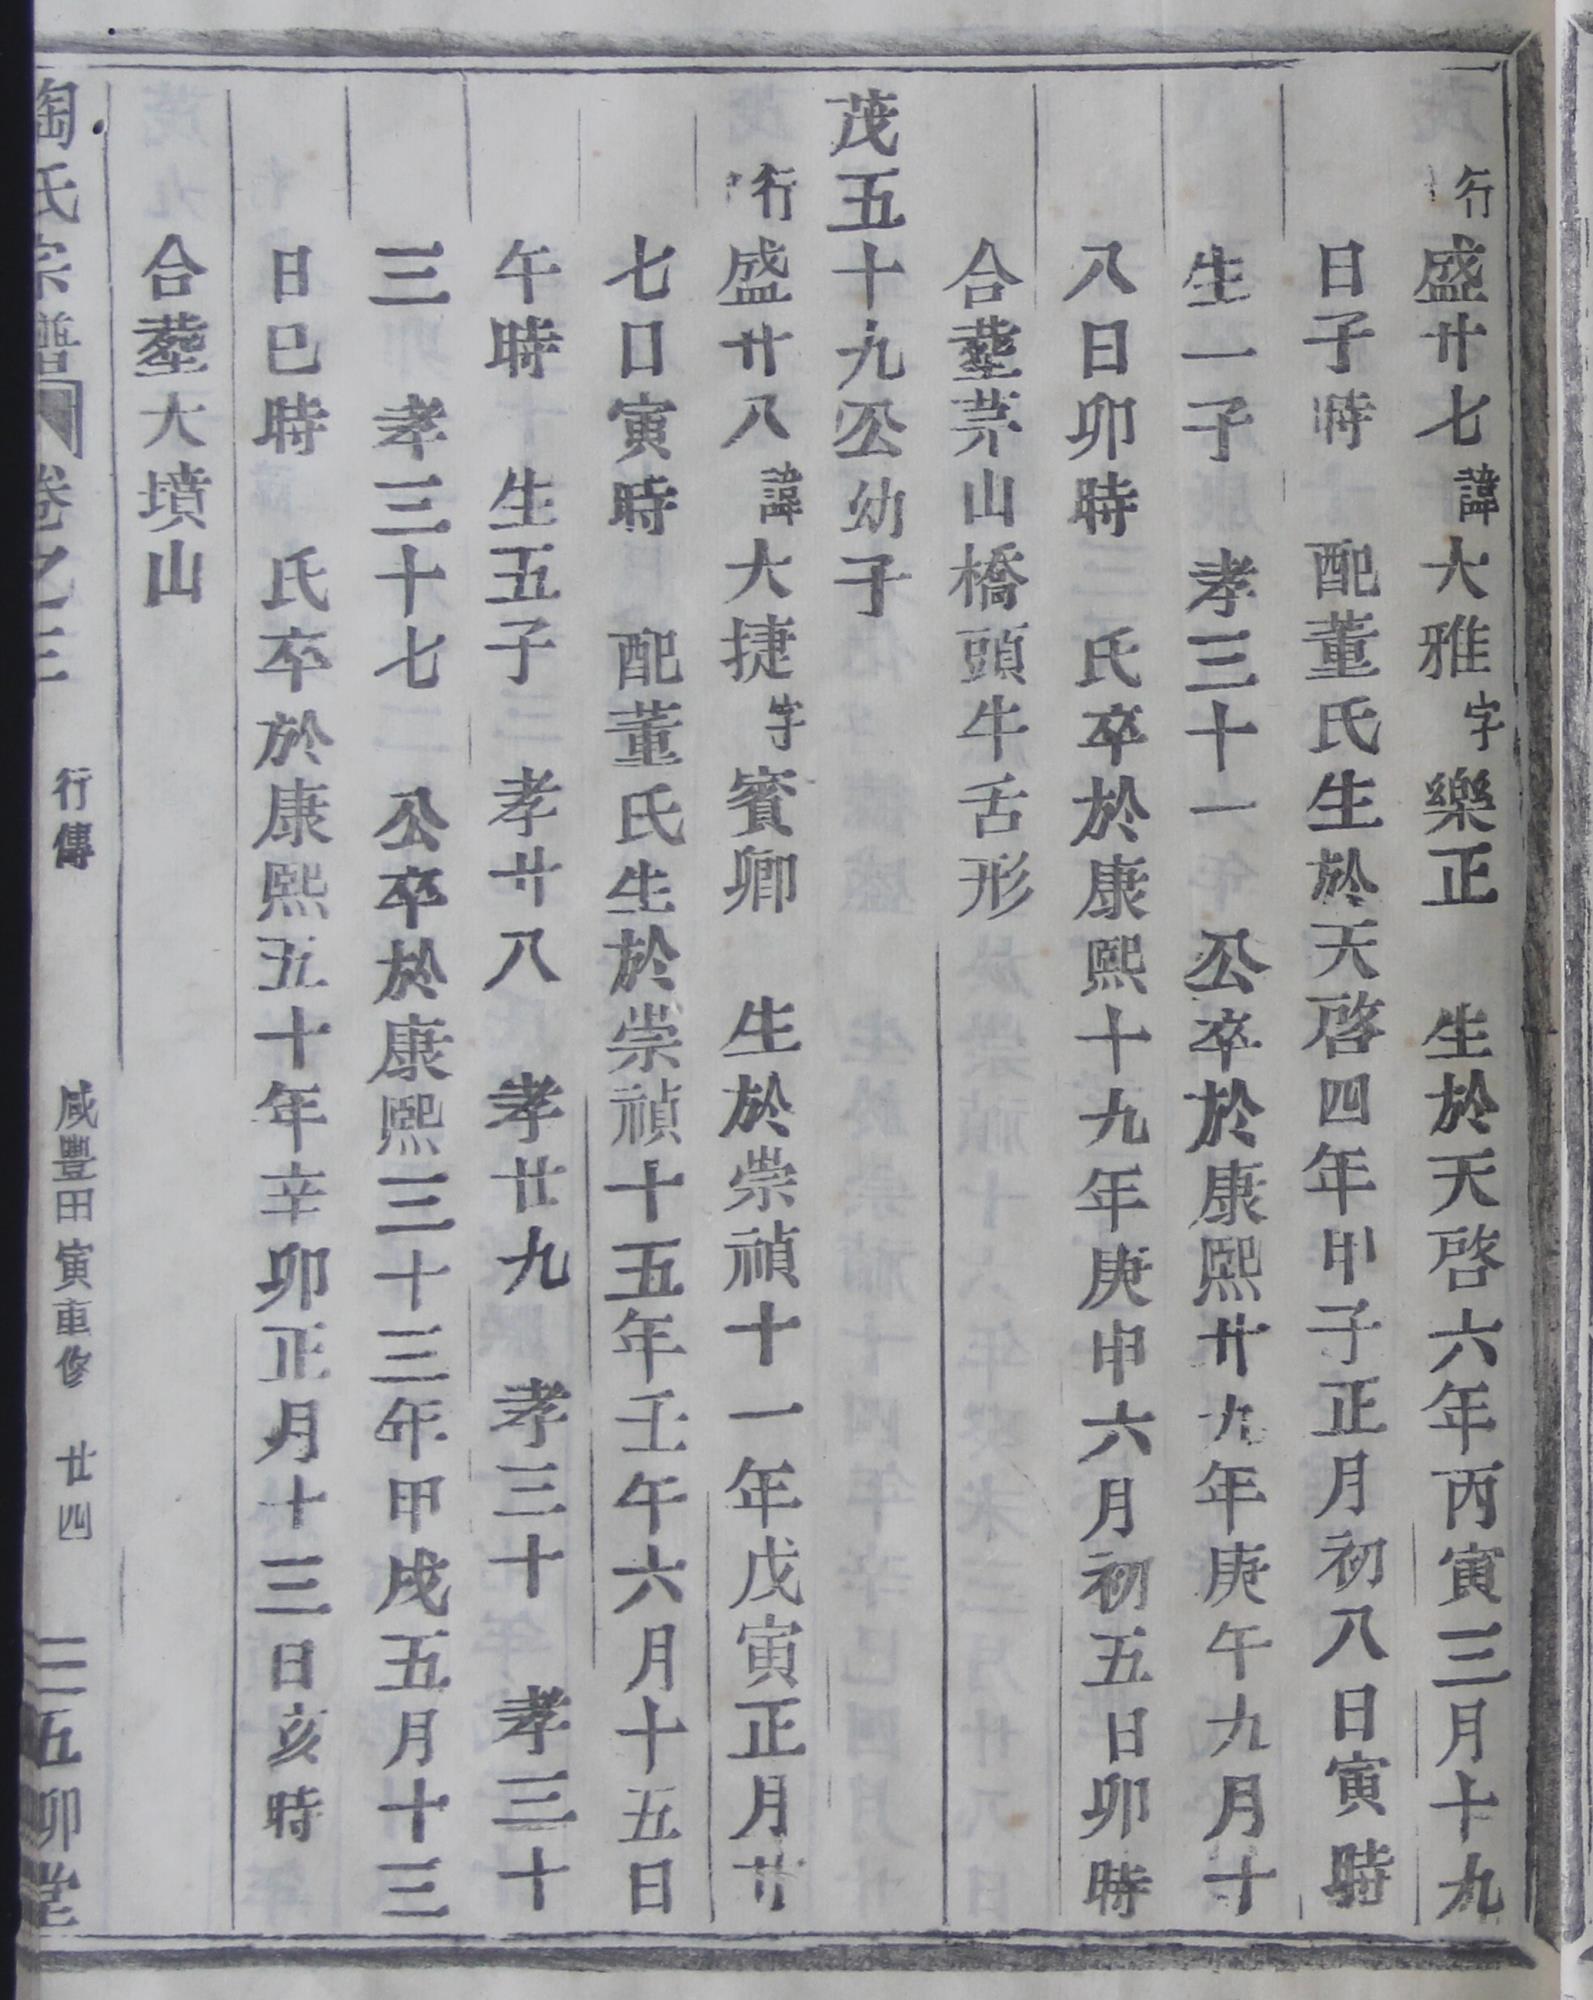 行盛廿七諱大雅字樂正 生於天啓六年丙寅三月十九
日子時 配董氏生於天啓四年甲子正月初八日寅時
生一子 孝三十一 公卒於康熙廿九年庚午九月十
八日卯時 氏卒於康熙十九年庚申六月初五日卯時
合塟茅山橋頭牛舌形
茂五十九公幼子
行盛廿八諱大捷字賓卿 生於崇禎十一年戊寅正月廿
七日寅時 配董氏生於崇禎十五年壬午六月十五日
午時 生五子 孝廿八 孝廿九 孝三十 孝三十
三 孝三十七 公卒於康熙三十三年甲戌五月十三
日巳時 氏卒於康熙五十年辛卯正月十三日亥時
合塟大墳山
陶氏宗譜 卷之三 行傳 咸豐甲寅重修 廿四 三五卯堂